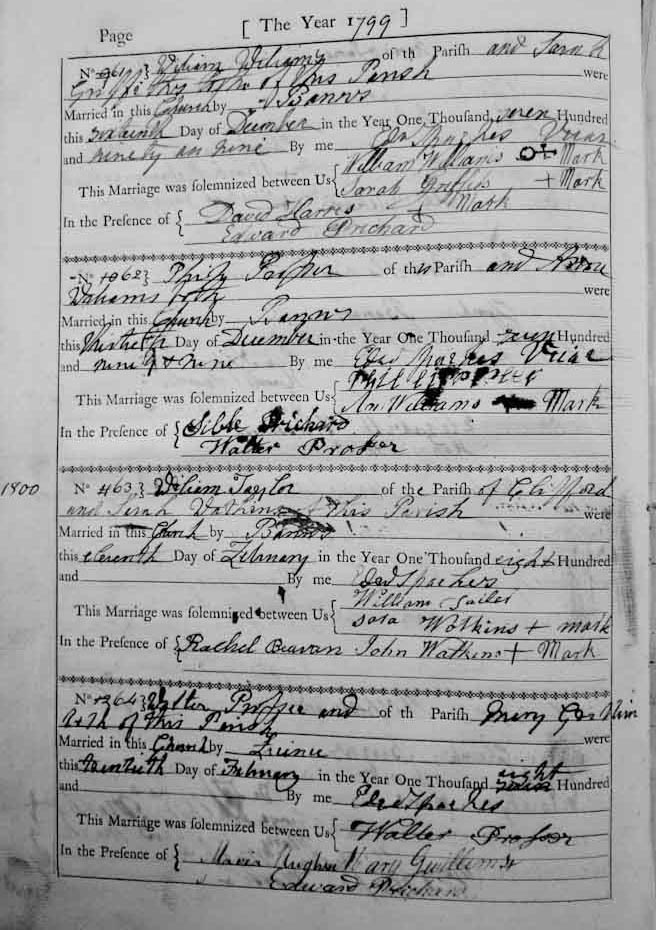 Page [ The Year 1799 ]
No 961 } William Williams of th Parish and Sarah
Griffiths both of this Parish were
Married in this Church by Banns
this Sixteenth Day of December in the Year One Thousand seven Hundred
and ninety an nine By me Edw Vicar
William Williams Mark
This Marriage was solemnized between Us { Sarah Griffiths + Mark
Mark
In the Presence of { David Harres
Edward Prichard
No 1062 } Philip of this Parish and
Waliams both were
Married in this Church by Banns
this thirtieth Day of December in the Year One Thousand seven Hundred
and ninety & nine By me Edw Vicar
This Marriage was solemnized between Us { An Williams Mark
In the Presence of { Sible Prichard
Walter Proser
1800
No 463 } William Taylor of the Parish of Clifford
and Sarah Watkins of this Parish were
Married in this Church by Banns
this eleventh Day of February in the Year One Thousand eight Hundred
and By me Edw
William
This Marriage was solemnized between Us { sara Wotkins + mark
In the Presence of { Rachel Beavan John Watkins + Mark
No 1364 } Walter Prosser and of th Parish Mary
both of this Parish were
Married in this Church by
this twentieth Day of February in the Year One Thousand eight Hundred
and By me Edw
This Marriage was solemnized between Us { Walter Prosser
In the Presence of { Mary Gwillim
Edward Prichard